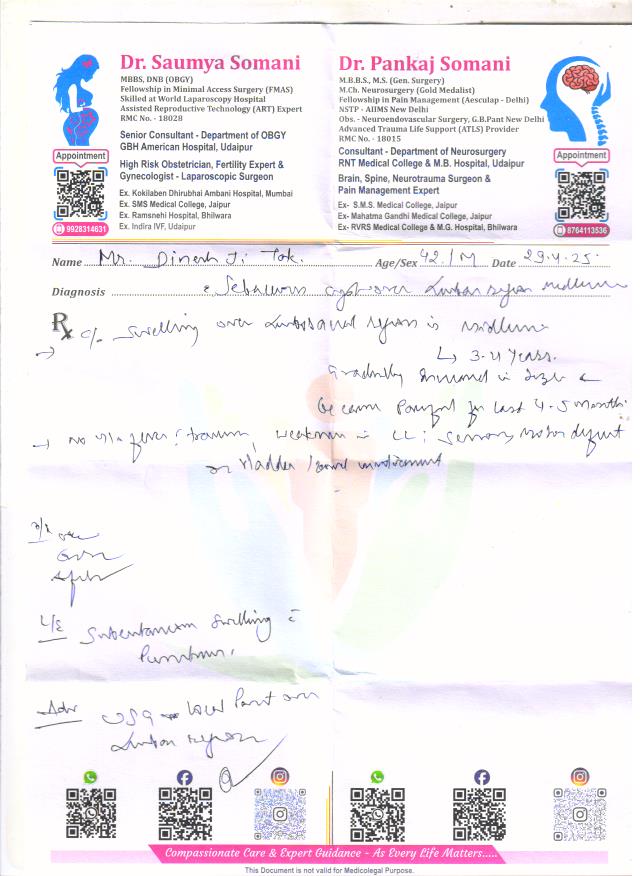 Dr. Saumya Somani
MBBS, DNB (OBGY)
Fellowship in Minimal Access Surgery (FMAS)
Skilled at World Laparoscopy Hospital
Assisted Reproductive Technology (ART) Expert
RMC No. - 18028
Senior Consultant - Department of OBGY
GBH American Hospital, Udaipur
High Risk Obstetrician, Fertility Expert &
Gynecologist - Laparoscopic Surgeon
Ex. Kokilaben Dhirubhai Ambani Hospital, Mumbai
Ex. SMS Medical College, Jaipur
Ex. Ramsnehi Hospital, Bhilwara
Ex. Indira IVF, Udaipur
Appointment
9928314631
Dr. Pankaj Somani
M.B.B.S., M.S. (Gen. Surgery)
M.Ch. Neurosurgery (Gold Medalist)
Fellowship in Pain Management (Aesculap - Delhi)
NSTP - AIIMS New Delhi
Obs. - Neuroendovascular Surgery, G.B.Pant New Delhi
Advanced Trauma Life Support (ATLS) Provider
RMC No. - 18015
Consultant - Department of Neurosurgery
RNT Medical College & M.B. Hospital, Udaipur
Brain, Spine, Neurotrauma Surgeon &
Pain Management Expert
Ex- S.M.S. Medical College, Jaipur
Ex- Mahatma Gandhi Medical College, Jaipur
Ex- RVRS Medical College & M.G. Hospital, Bhilwara
Appointment
8764113536
Name Mr. Dinesh Ji Tak. Age/Sex 42/M Date 29.4.25.
Diagnosis Sebaceous cyst over Lumbar region midline
Rx c/o Swelling over Lumbosacral region in midline
↳ 3-4 Years.
Gradually increased in size &
became Painful for last 4-5 months.
→ No H/o fever, trauma, weakness in LL, sensory motor deficit
or bladder / bowel involvement
L/E Subcutaneous swelling c̄
Punctum.
Adv USG Local Part over
Lumbar region
Compassionate Care & Expert Guidance - As Every Life Matters.....
This Document is not valid for Medicolegal Purpose.